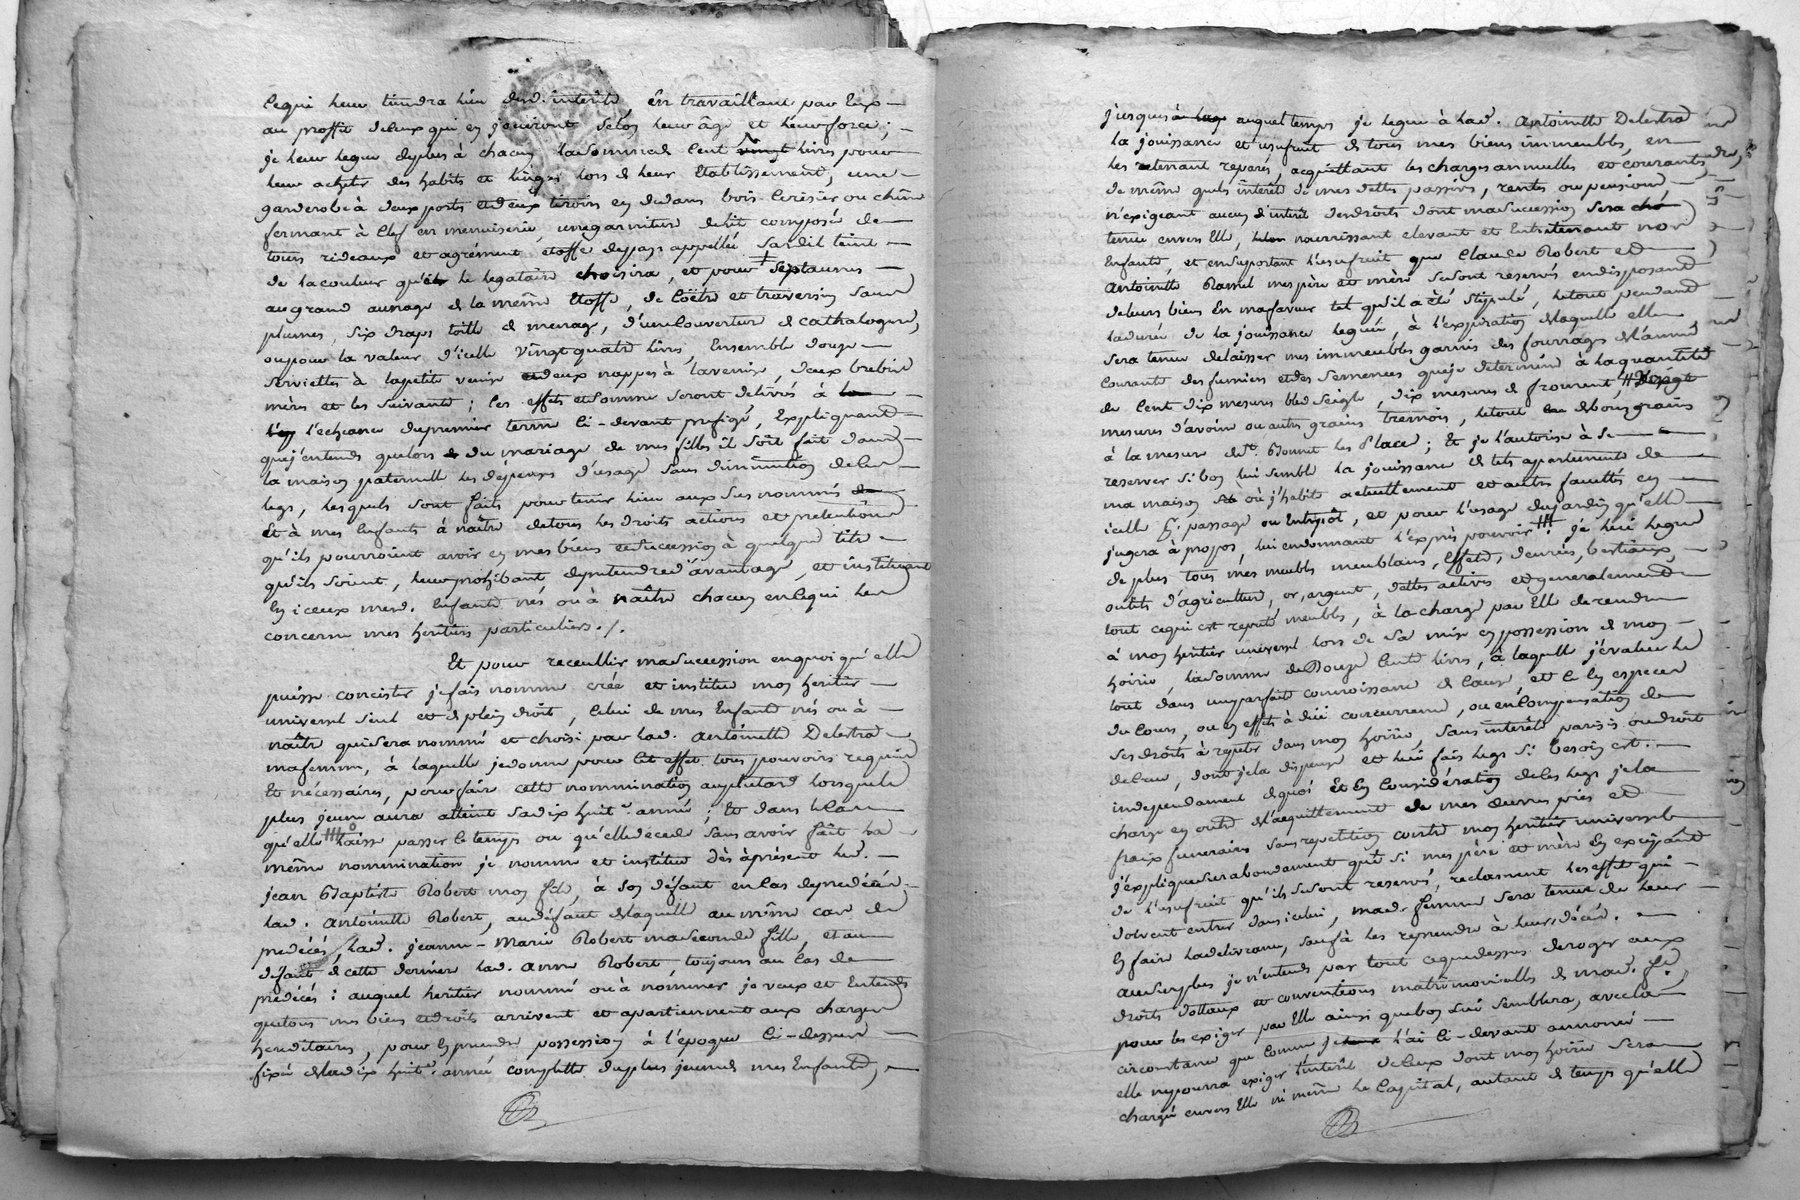 Cequi leur tiendra lieu desd. interêts, En travaillant pour Eux
au proffit deCeux qui en jouiront selon leur âge et leur force;
je leur legue deplus à chacun la somme de Cent vingt livres pour
leur acheter des habits et linges lors de leur Etablissement, une
garderobe à deux portes et deux tiroirs en dedans bois Cerisier ou chêne
fermant à Clef en menuiserie, une garniture de lit composée de
tours rideaux et agrément étoffe du pays appellée Sardil teint
de la couleur qu'il le legataire choisira, et pour sept aunes
au grand aunage de la même Etoffe, de Coëtre et traversin sans
plumes, six draps toille de menage, d'une Couverture de Cathalogne,
ou pour la valeur d'icelle vingt quatre livres, Ensemble douze
serviettes à la petite venise et deux nappes à la venise, deux brebis
mères et les suivants; Ces effets et somme seront delivrés à
l'echeance du premier terme Ci-devant prefigé, Expliquant
que j'entends que lors du mariage de mes filles il soit fait dans
la maison paternelle les dépenses d'usage sans diminution de leur
legs, lesquels sont faits pour tenir lieu aux sus nommés
Et à mes Enfants à naître de tous les droits actions et pretentions
qu'ils pourroient avoir en mes biens et succession à quelque titre
qu'ils soient, leur prohibant de pretendre d'avantage, et instituant
En iceux mesd. Enfants nés ou à naître chacun en Cequi les
concerne mes heritiers particuliers ./.
Et pour receuillir ma succession en quoi qu'elle
puisse concister je fais nomme crée et institue mon heritier
universel seul et de plein droit, Celui de mes Enfants nés ou à
naître qui sera nommé et choisi par lad. Antoinette Delestra
ma femme, à laquelle je donne pour Cet effet tous pouvoirs requis
Et nécessaires, pour faire cette nommination au plutard lorsque le
plus jeune aura atteint sa dix huite. année; Et dans le Cas
qu'elle laisse passer le temps ou qu'elle decede sans avoir fait la
même nommination je nomme et institue dès àprésent led.
jean Baptiste Robert mon fils, à son défaut en Cas de predécés
lad. Antoinette Robert, au défaut de laquelle au même cas de
predécés, lad. jeanne-Marie Robert ma seconde fille, et au
défaut de cette derniere lad. Anne Robert, toujours au Cas de
predécés: auquel heritier nommé ou à nommer je veux et Entends
que tous mes biens et droits arrivent et apartiennent aux charges
hereditaires, pour En prendre possession à l'époque Ci-dessus
fixée de la dix huite. année complette du plus jeune de mes Enfants,
jusques auquel temps je legue à lad. Antoinette Delestra
la jouissance et usufruit de tous mes biens immeubles, en
les tenant reparés, acquittant les charges annuelles et courants
de même que les interêts de mes dettes passives, rentes ou pensions,
n'exigeant aucun d'interêt des droits dont ma succession sera
tenue envers Elle, nourrissant elevant et Entretenant nos
Enfants, et en suportant l'usufruit que Claude Robert et
Antoinette Ramel mes père et mère se sont reservés en disposant
de leurs biens En ma faveur tel qu'il a été stipulé, le tout pendant
la durée de la jouissance leguée, à l'expiration de laquelle elle
sera tenue de laisser mes immeubles garnis des fourrages de l'année
Courante des fumiers et des semences que je determine à la quantité
de Cent dix mesures bled Seigle, dix mesures de froment,
mesures d'avoine ou autres grains tremois, le tout de bons grains
à la mesure de St. Bonnet les Place; Et je l'autorise à se
reserver si bon lui semble la jouissance de tels apartements de
ma maison où j'habite actuellement et autres facultés en
icelle passage ou Entrepôt, et pour l'usage du jardin qu'elle
jugera à propos, lui en donnant l'exprès pouvoir; je lui legue
de plus tous mes meubles meublans, Effets, denrées, bestiaux,
outils d'agriculture, or, argent, dettes actives et generalement
tout cequi est reputé meubles, à la charge par Elle de rendre
à mon heritier universel lors de sa mise en possession de mon
hoirie, la somme de Douze Cents livres, à laquelle j'évalue le
tout dans une parfaite connoissance de Cause, et Ce En especes
de Cours, ou En effets à dûe concurrence, ou en Compensation de
ses droits à repeter dans mon hoirie, sans interêts parisis ou droit
de Crue, dont je la dispense et lui fais legs si besoin est.
independament de quoi Et En Considération de Ces legs je la
charge en outre de l'acquittement de mes œuvres pies et
fraix funeraires sans repetition contre mon heritier universel
j'explique surabondament que si mes père et mère En exerçant
de l'usufruit qu'ils se sont reservés, reclament les effets qui
doivent entrer dans icelui, mad. femme sera tenue de leur
En faire la delivrance, sauf à les reprendre à leurs décés.
au surplus je n'entends par tout cequi dessus deroger aux
droits dottaux et conventions matrimonialles de mad. fe.
pour les exiger par Elle ainsi que bon Lui semblera, avec la
circonstance que comme je l'ai Ci-devant annoncé
elle ne pourra exiger l'interêt de Ceux dont mon hoirie sera
chargée envers Elle ni même le Capital, autant de temps qu'elle